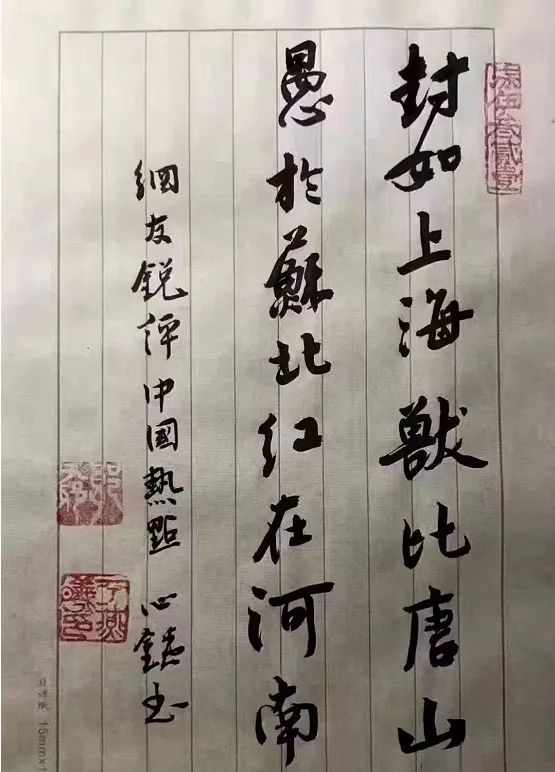 封如上海獸比唐山
愚於蘇北红在河南
網友銳評中国熱點 心
日课纸 15mm×1